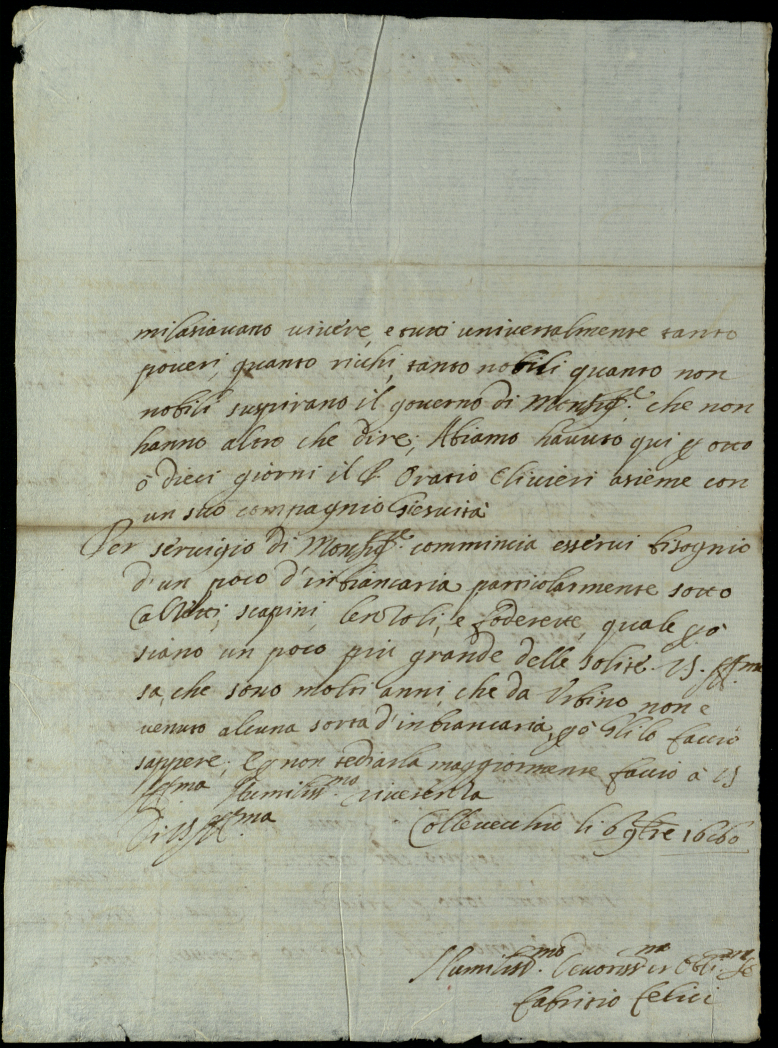 milasiavano vivere, e tutti universalmente tanto
poveri, quanto richi, tanto nobili quanto non
nobili suspirano il governo di Monsig.re che non
hanno altro che dire; Abiamo havuto qui p otto
ò dieci giorni il P. Oratio Olivieri asieme con
un suo compagnio Giesuita
Per servigio di Monsig.re commincia esservi bisognio
d'un poco d'inbiancaria particolarmente sotto
calzetti, scapini, e foderette, quale pò
siano un poco più grande delle solite. VS. Ill.ma
sa, che sono molti anni, che da Urbino non è
venuto alcuna sorta d'inbiancaria, pò gli lo faccio
sappere; e p non tediarla maggiormente faccio à VS
Ill.ma humiliss.mo riverenza
Di VS Ill.ma Collevechio li 6 9bre 1660
Humiliss.mo Devotiss.mo et Obli.mo Se
Fabritio Felici